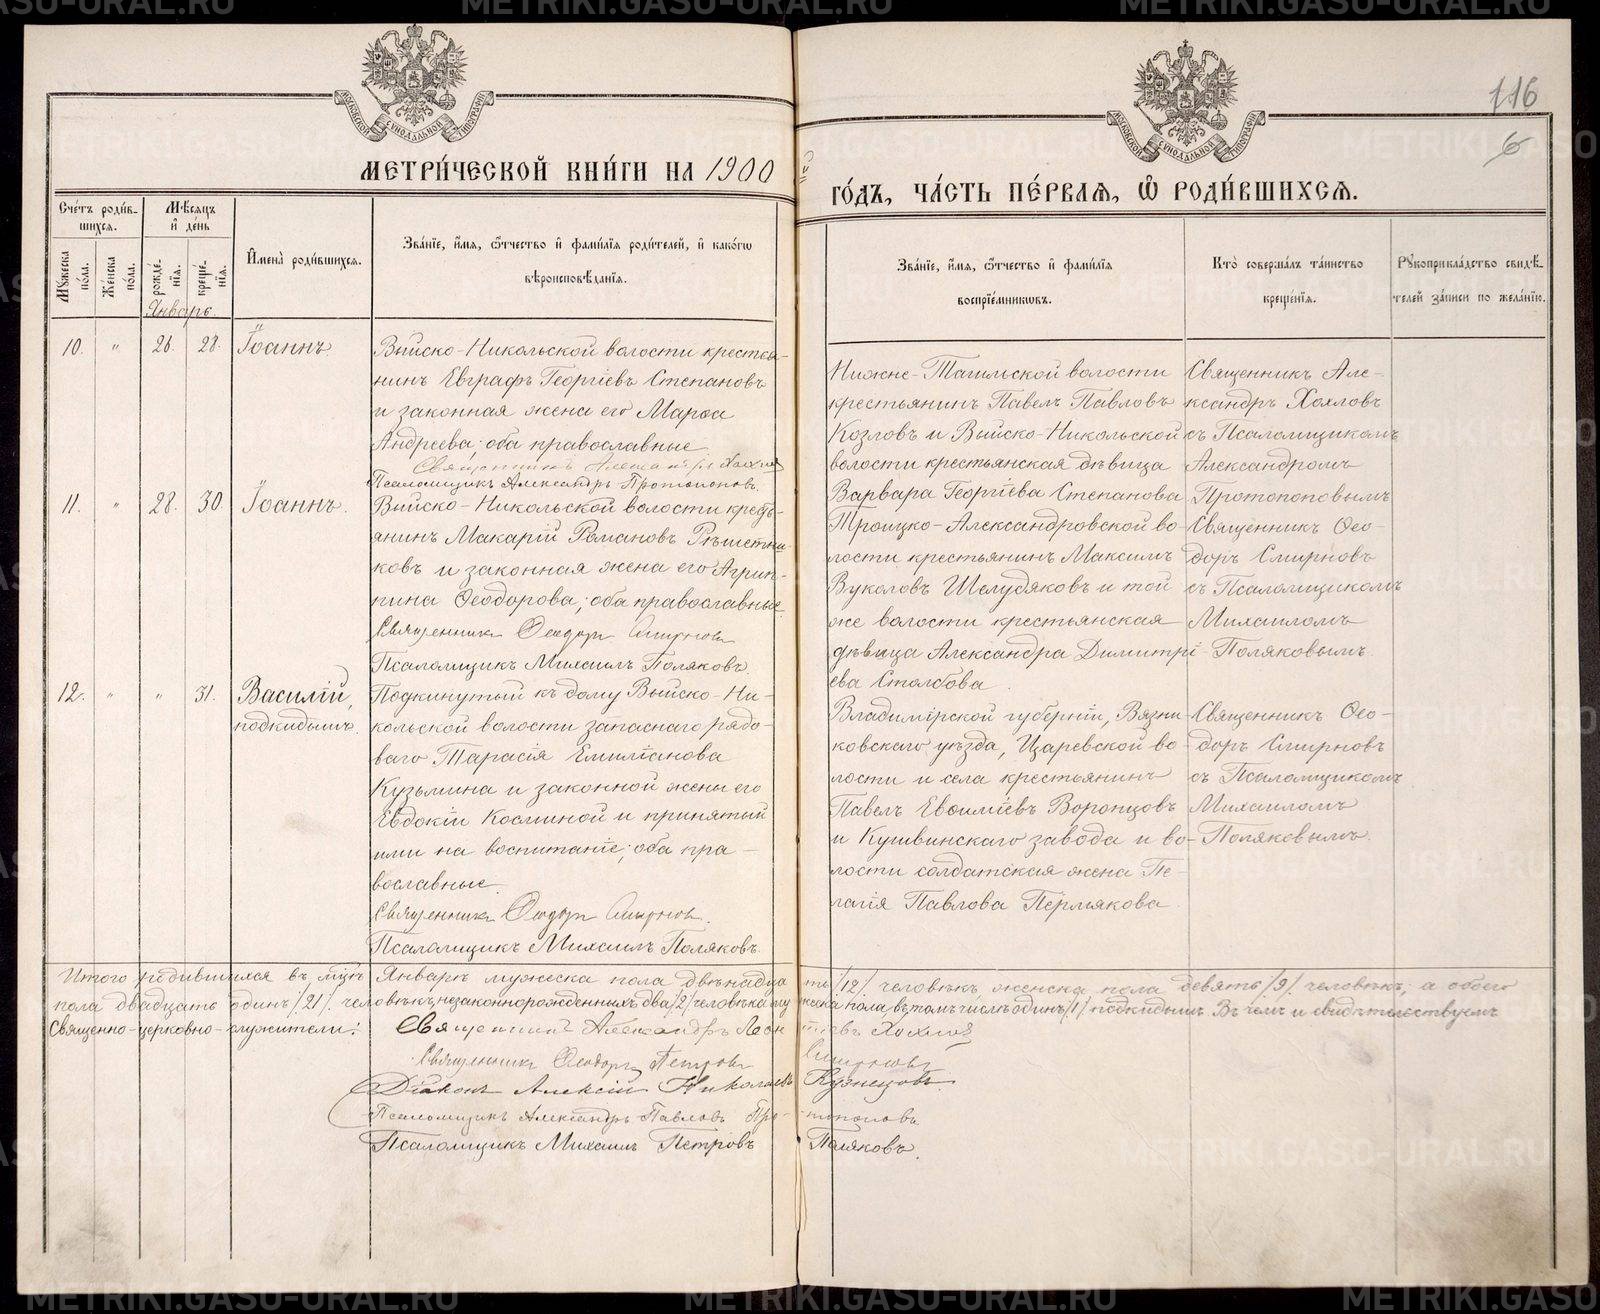 METRIKI.GASU-URAL.RU
МОСКОВСКОЙ СѴНОДАЛЬНОЙ ТИПОГРАФІИ
МОСКОВСКОЙ СѴНОДАЛЬНОЙ ТИПОГРАФІИ
116
6
МЕТРИ́ЧЕСКОЙ КНИ́ГИ НА 1900 й
ГО́ДЪ, ЧА́СТЬ ПЕ́РВАЯ, Ѿ РОДИ́ВШИХСЯ.
Сче́тъ роди́в-
шихся.
Мꙋжеска по́ла.
Же́нска по́ла.
Мѣ́сяцъ и де́нь
рожде́-нія.
креще́-нія.
И́мена̀ роди́вшихся.
Зва́ніе, и́мя, ѻ́тчество и фами́лія роди́телей, и како́гѡ
вѣроисповѣ́данія.
Зва́ніе, и́мя, ѻ́тчество и фами́лія
воспріе́мникѡвъ.
Кто̀ соверша́лъ та́инство
креще́нія.
Рꙋкоприкла́дство свидѣ́-
телей за́писи по жела́нію.
Январь.
10. " 26. 28. Іоаннъ.
Выйско-Никольской волости крестья-
нинъ Евграфъ Георгіевъ Степановъ
и законная жена его Марѳа
Андреева; оба православные
Священникъ Александръ Хохловъ
Псаломщикъ Александръ Протопоповъ.
Нижне-Тагильской волости
крестьянинъ Павелъ Павловъ
Козловъ и Выйско-Никольской
волости крестьянская дѣвица
Варвара Георгіева Степанова
Священникъ Але-
ксандръ Хохловъ
съ Псаломщикомъ
Александромъ
Протопоповымъ
11. " 28. 30. Іоаннъ.
Выйско-Никольской волости кресть-
янинъ Макарій Романовъ Рѣшетни-
ковъ и законная жена его Агрип-
пина Ѳеодорова; оба православные
Священникъ Ѳеодоръ Смирновъ
Псаломщикъ Михаилъ Поляковъ.
Троицко-Александровской во-
лости крестьянинъ Максимъ
Вуколовъ Шелудяковъ и той
же волости крестьянская
дѣвица Александра Димитрі-
ева Столбова.
Священникъ Ѳео-
доръ Смирновъ
съ Псаломщикомъ
Михаиломъ
Поляковымъ.
12. " " 31. Василій,
подкидышъ.
Подкинутый къ дому Выйско-Ни-
кольской волости запаснаго рядо-
ваго Тарасія Емиліанова
Кузьмина и законной жены его
Евдокіи Косминой и принятый
ими на воспитаніе; оба пра-
вославные.
Священникъ Ѳеодоръ Смирновъ.
Псаломщикъ Михаилъ Поляковъ.
Владимірской губерніи, Вязни-
ковскаго уѣзда, Царевской во-
лости и села крестьянинъ
Павелъ Евѳиміевъ Воронцовъ
и Кушвинскаго завода и во-
лости солдатская жена Пе-
лагія Павлова Пермякова.
Священникъ Ѳео-
доръ Смирновъ
съ Псаломщикомъ
Михаиломъ
Поляковымъ.
Итого родившихся въ мцѣ Январѣ мужеска пола двѣнадцать /12/ человѣкъ женска пола девять /9/ человѣкъ; а обоего
пола двадцать одинъ /21/ человѣкъ, незаконнорожденныхъ два /2/ человѣка мужеска пола въ томъ числѣ одинъ /1/ подкидышъ. Въ чемъ и свидѣтельствуемъ
Священно-церковно-служители: Священникъ Александръ Леонтіевъ Хохловъ
Священникъ Ѳеодоръ Петровъ Смирновъ
Діаконъ Алексій Николаевъ Кузнецовъ.
Псаломщикъ Александръ Павловъ Про-топоповъ
Псаломщикъ Михаилъ Петровъ Поляковъ.